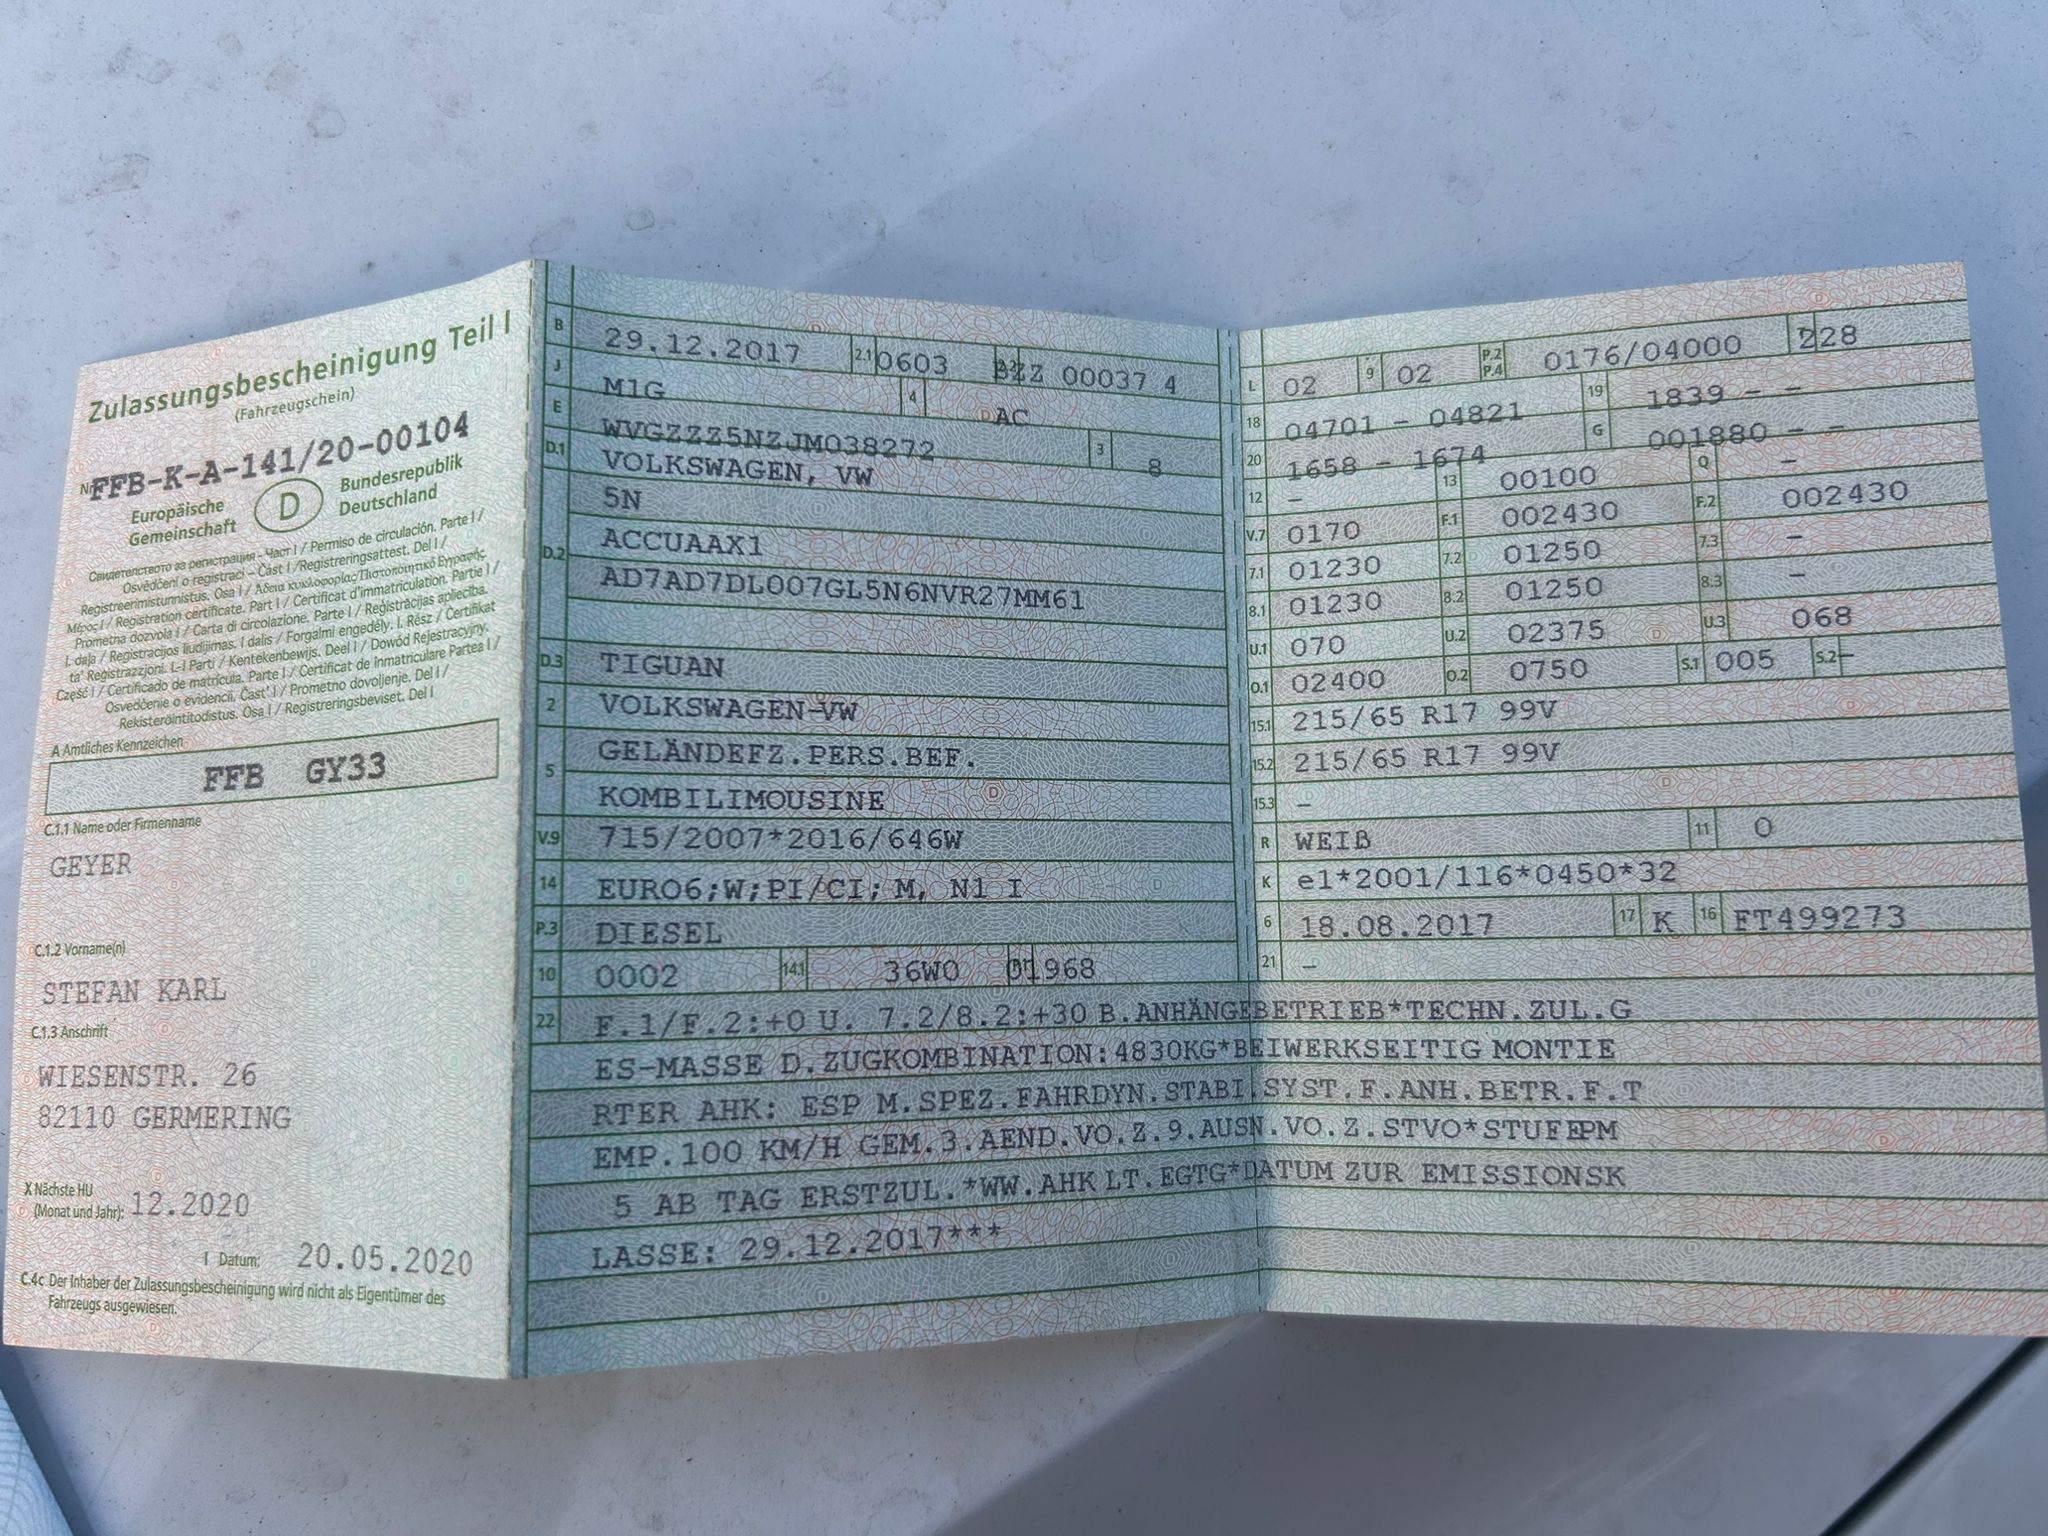 Zulassungsbescheinigung Teil I
(Fahrzeugschein)
Nr. FFB-K-A-141/20-00104
Europäische Gemeinschaft D Bundesrepublik Deutschland
Свидетелство за регистрация – Част I / Permiso de circulación. Parte I /
Osvědčení o registraci – Část I / Registreringsattest. Del I /
Registreerimistunnistus. Osa I / Άδεια κυκλοφορίας/Πιστοποιητικό Εγγραφής
Μέρος I / Registration certificate. Part I / Certificat d'immatriculation. Partie I /
Prometna dozvola I / Carta di circolazione. Parte I / Reģistrācijas apliecība.
I. daļa / Registracijos liudijimas. I dalis / Forgalmi engedély. I. Rész / Ċertifikat
ta' Reġistrazzjoni. L-I Parti / Kentekenbewijs. Deel I / Dowód Rejestracyjny.
Część I / Certificado de matrícula. Parte I / Certificat de înmatriculare Partea I /
Osvedčenie o evidencii. Časť I / Prometno dovoljenje. Del I /
Rekisteröintitodistus. Osa I / Registreringsbeviset. Del I
A Amtliches Kennzeichen
FFB GY33
C.1.1 Name oder Firmenname
GEYER
C.1.2 Vorname(n)
STEFAN KARL
C.1.3 Anschrift
WIESENSTR. 26
82110 GERMERING
X Nächste HU
(Monat und Jahr): 12.2020
I Datum: 20.05.2020
C.4c Der Inhaber der Zulassungsbescheinigung wird nicht als Eigentümer des
Fahrzeugs ausgewiesen.
B 29.12.2017 2.1 0603 BZZ 00037 4
J M1G 4 AC
E WVGZZZ5NZJM038272 3 8
D.1 VOLKSWAGEN, VW
5N
D.2 ACCUAAX1
AD7AD7DL007GL5N6NVR27MM61
D.3 TIGUAN
2 VOLKSWAGEN-VW
5 GELÄNDEFZ.PERS.BEF.
KOMBILIMOUSINE
V.9 715/2007*2016/646W
14 EURO6;W;PI/CI; M, N1 I
P.3 DIESEL
10 0002 14.1 36W0 01968
L 02 9 02 P.2 P.4 0176/04000 228
18 04701 - 04821 19 1839 - -
20 1658 - 1674 G 001880 - -
12 - 13 00100 Q -
V.7 0170 F.1 002430 F.2 002430
7.1 01230 7.2 01250 7.3 -
8.1 01230 8.2 01250 8.3 -
U.1 070 U.2 02375 U.3 068
O.1 02400 O.2 0750 S.1 005 S.2 -
15.1 215/65 R17 99V
15.2 215/65 R17 99V
15.3 -
R WEIß 11 0
K e1*2001/116*0450*32
6 18.08.2017 17 K 16 FT499273
21 -
22 F.1/F.2:+0 U. 7.2/8.2:+30 B.ANHÄNGEBETRIEB*TECHN.ZUL.G
ES-MASSE D.ZUGKOMBINATION:4830KG*BEIWERKSEITIG MONTIE
RTER AHK: ESP M.SPEZ.FAHRDYN.STABI.SYST.F.ANH.BETR.F.T
EMP.100 KM/H GEM.3.AEND.VO.Z.9.AUSN.VO.Z.STVO*STUFEPM
5 AB TAG ERSTZUL.*WW.AHK LT.EGTG*DATUM ZUR EMISSIONSK
LASSE: 29.12.2017***